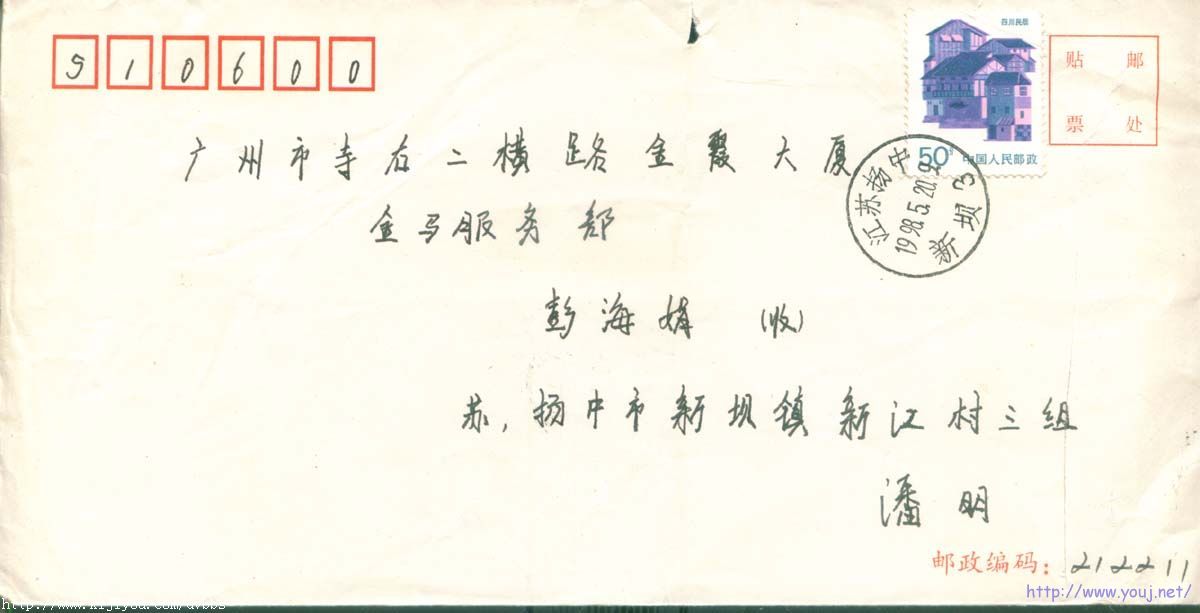 510600
四川民居
50分 中国人民邮政
贴邮
票处
江苏扬中
1998.5.20.
新坝 3
广州市寺右二横路金霞大厦
金马服务部
彭海娟 (收)
苏,扬中市新坝镇新江村三组
潘明
邮政编码:212211
http://www.youj.net/